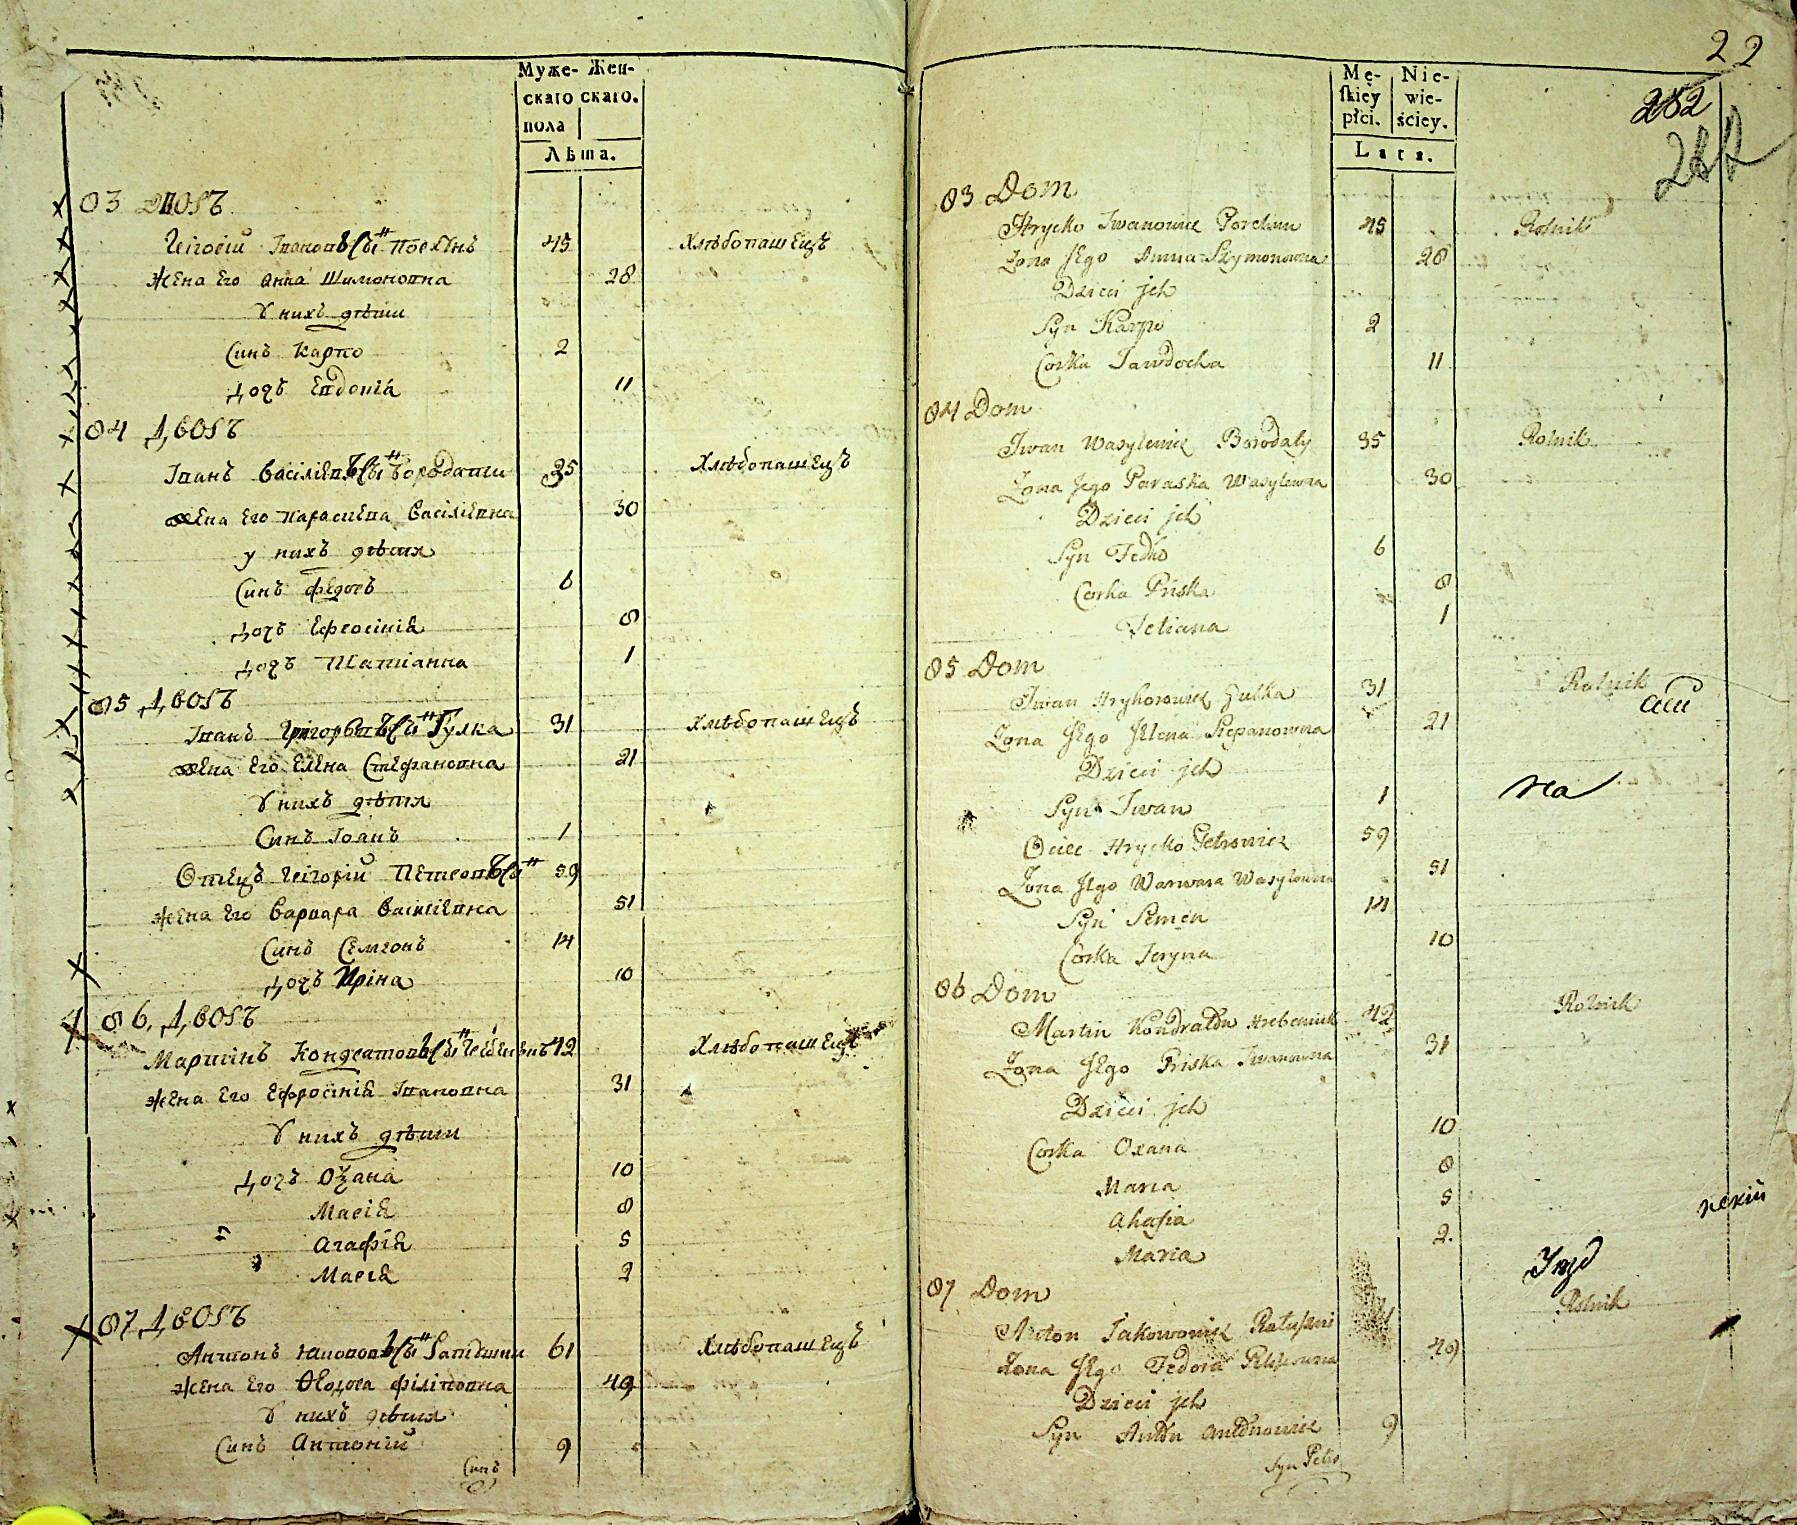 Муже- Жен-
скаго скаго.
пола
Лѣта.
83 Дворъ
Григорій Івановъ Сынъ 45 Хлѣбопашецъ
Жена Его Анна Шимоновна 28
У нихъ дѣти
Синъ Карпо 2
Дочь Евдокіа 11
84 Дворъ
Іванъ Василіевъ Сынъ Бородати 35 Хлѣбопашецъ
Жена Его Параскева Василіевна 30
у нихъ дѣти
Синъ Федоръ 6
Дочь Ефросиніа 8
Дочь Татіанна 1
85 Дворъ
Іванъ Григорьевъ Сынъ Гулка 31 Хлѣбопашецъ
Жена Его Елена Стефановна 21
У нихъ дѣти
Синъ Іоанъ 1
Отецъ Григорій Петровъ Сынъ 59
Жена Его Варвара Василіевна 51
Синъ Семіонъ 14
Дочь Ирина 10
86. Дворъ
Мартинъ Кондратовъ Сынъ 42 Хлѣбопашецъ
Жена Его Ефросиніа Івановна 31
У нихъ дѣти
Дочь Оѯана 10
Маріа 8
Агафіа 5
Маріа 2
87 Дворъ
Антонъ Сынъ 61 Хлѣбопашецъ
Жена Его Ѳеодора Філіповна 49
У нихъ дѣти
Синъ Антоній 9
Синъ
22
282
Mę- Nie-
skiey wie-
płci. ściey.
Lata.
83 Dom
Hrycko Iwanowicz Porchun 45 Rolnik
Żona Jego Anna Szymonowna 28
Dzieci jch
Syn Karpo 2
Corka Jawdocha 11
84 Dom
Iwan Wasylewicz Borodaty 35 Rolnik
Żona Jego Paraska Wasylewna 30
Dzieci jch
Syn Fedko 6
Corka Priska 8
Tetiana 1
85 Dom
Iwan Hryhorowicz Hulka 31 Rolnik
Żona Jego Jelena Stepanowna 21
Dzieci jch
на
Syn Iwan 1
Ociec Hrycko Petrowicz 59
Żona Jego Warwara Wasylowna 51
Syn Semen 14
Corka Jeryna 10
86 Dom
Martin Kondratow Hrebeniuk 42 Rolnik
Żona Jego Priska Iwanowna 31
Dzieci jch
Corka Oxana 10
Maria 8
Ahafia 5
Maria 2.
87 Dom
Anton Jakowowicz Rolnik
Żona Jego Fedora 49
Dzieci jch
Syn Anton Antonowicz 9
Syn Petro